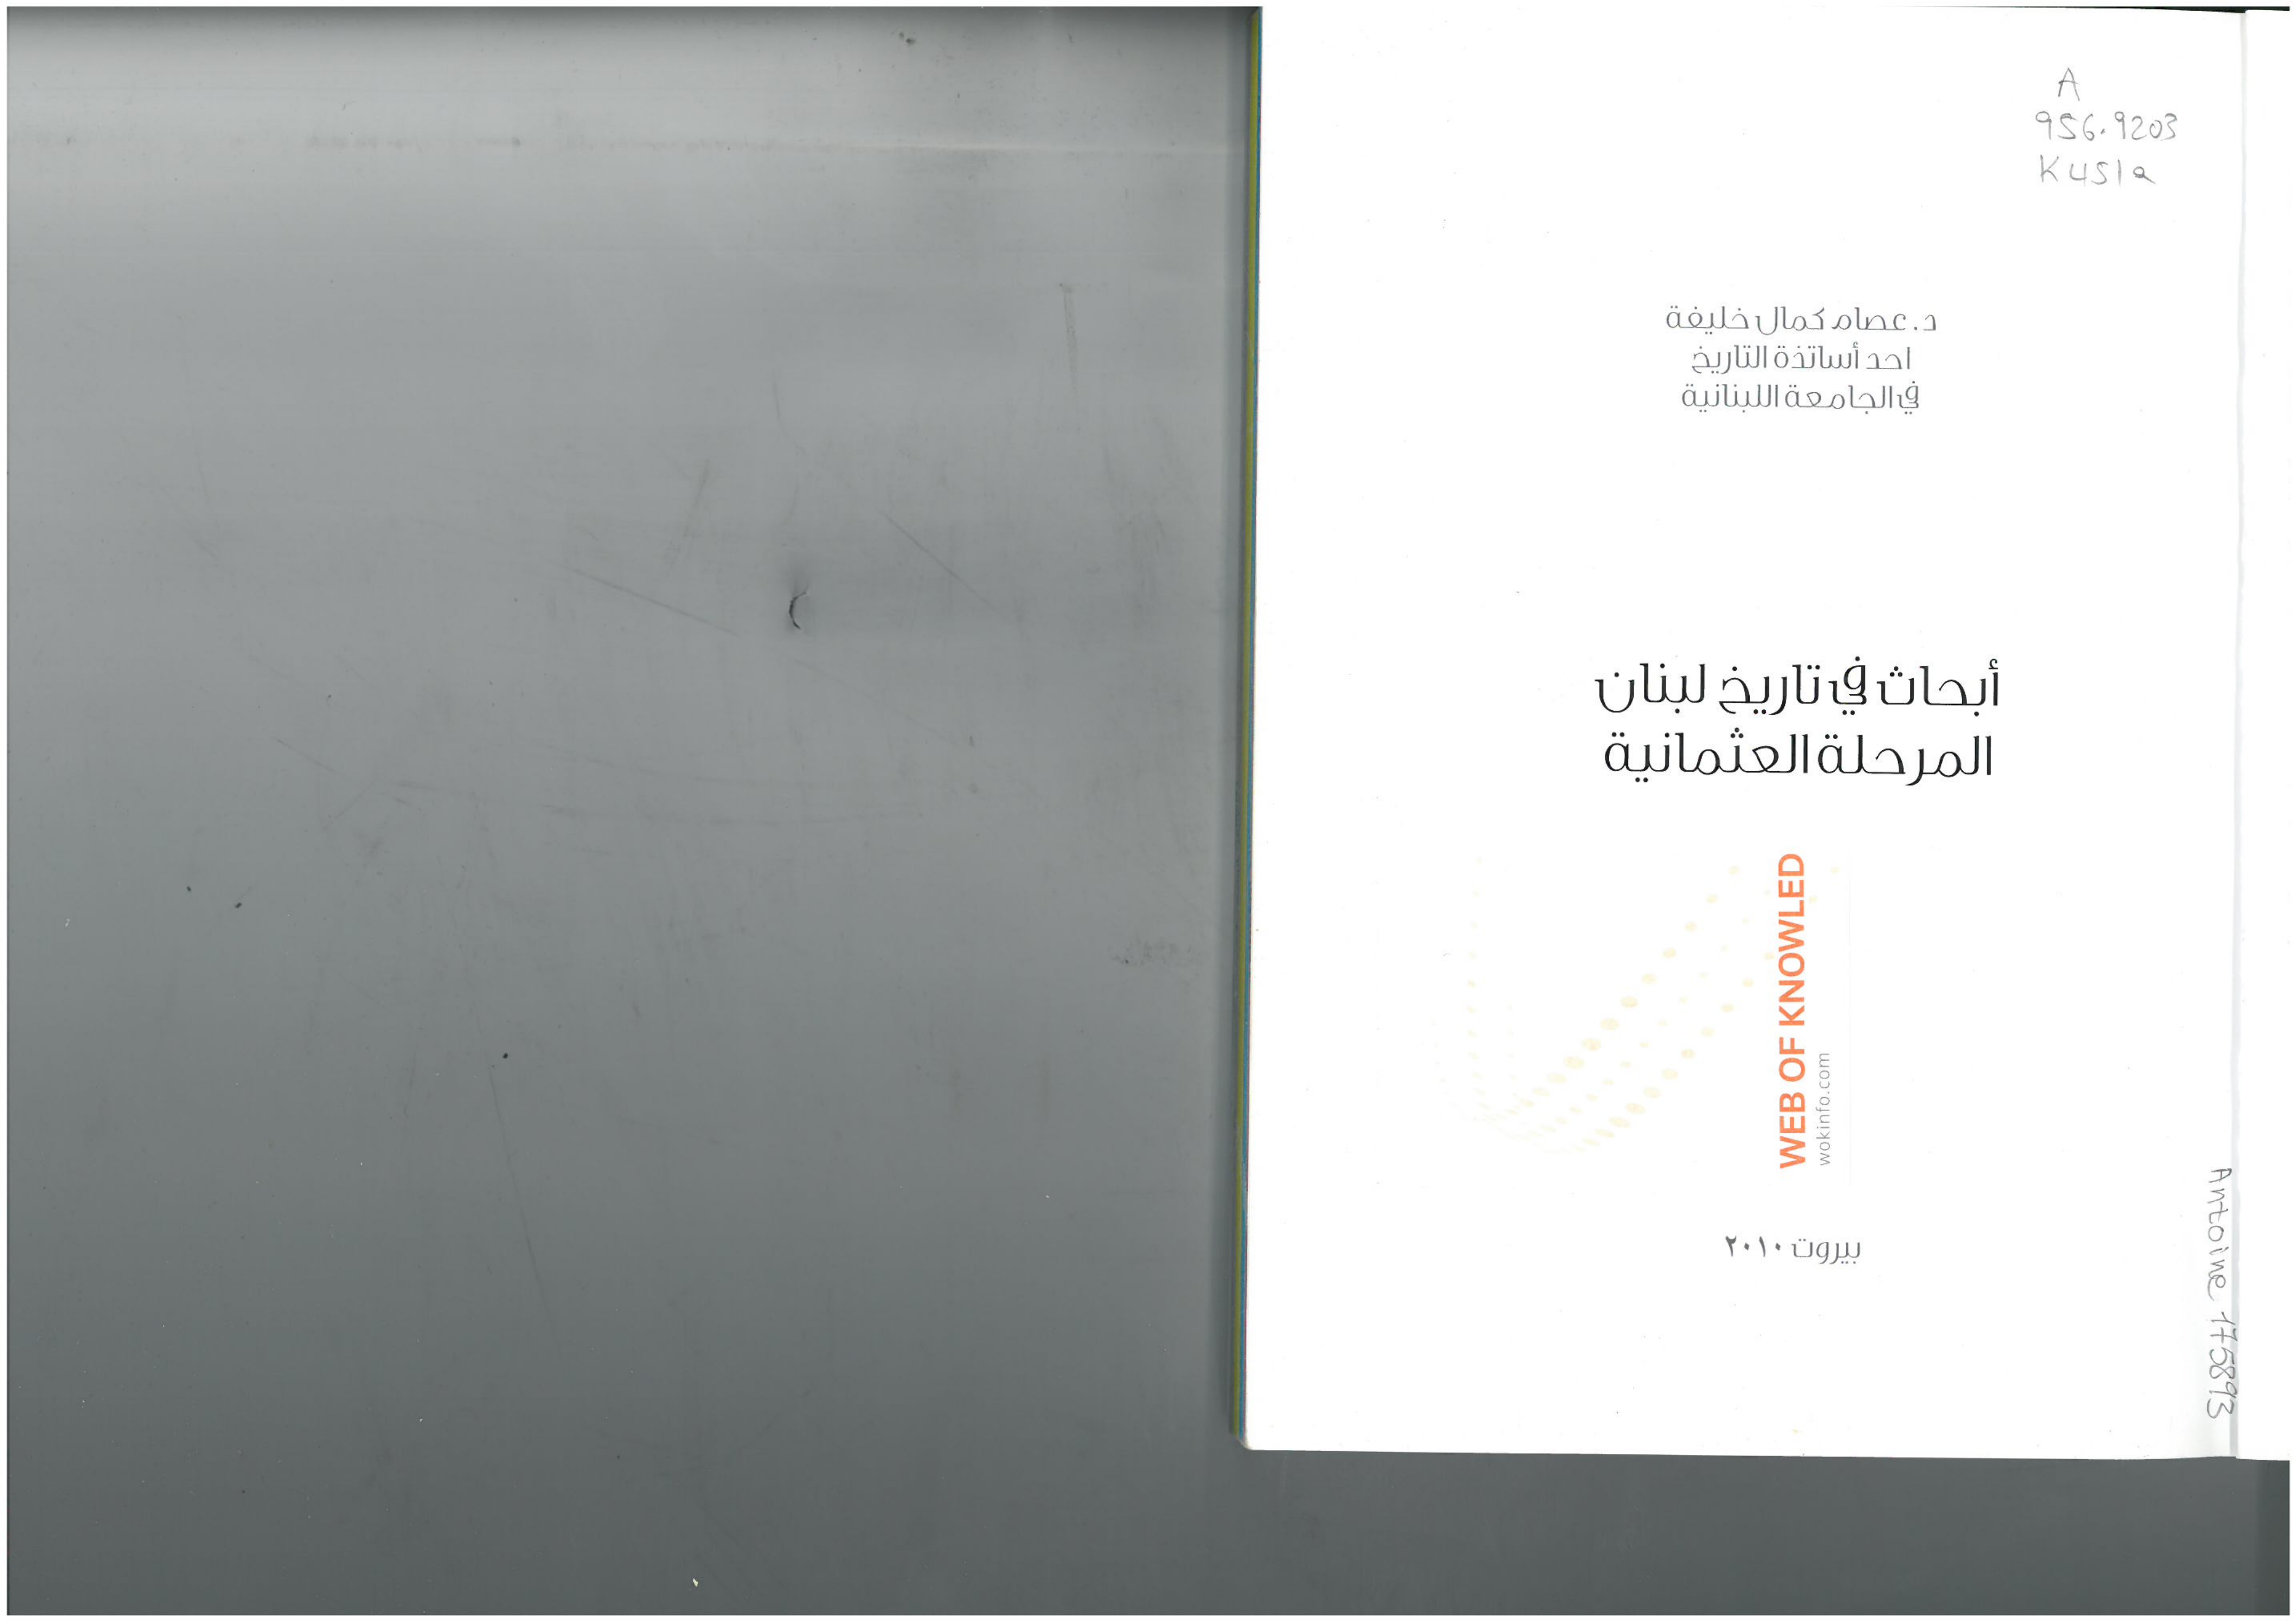 A
956.9203
K451a
د. عصام كمال خليفة
احد أساتذة التاريخ
في الجامعة اللبنانية
أبحاث في تاريخ لبنان
المرحلة العثمانية
WEB OF KNOWLED
wokinfo.com
بيروت ٢٠١٠
Antoine 175893